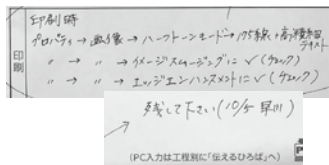 印刷時
プロパティ→画像→ハーフトーンモード→175線+高精細テキスト
〃 → 〃 →イメージスムージングに✓(チェック)
〃 → 〃 →エッジエンハンスメントに✓(チェック)
印刷
残して下さい(10/5 早川)
(PC入力は工程別に「伝えるひろば」へ)